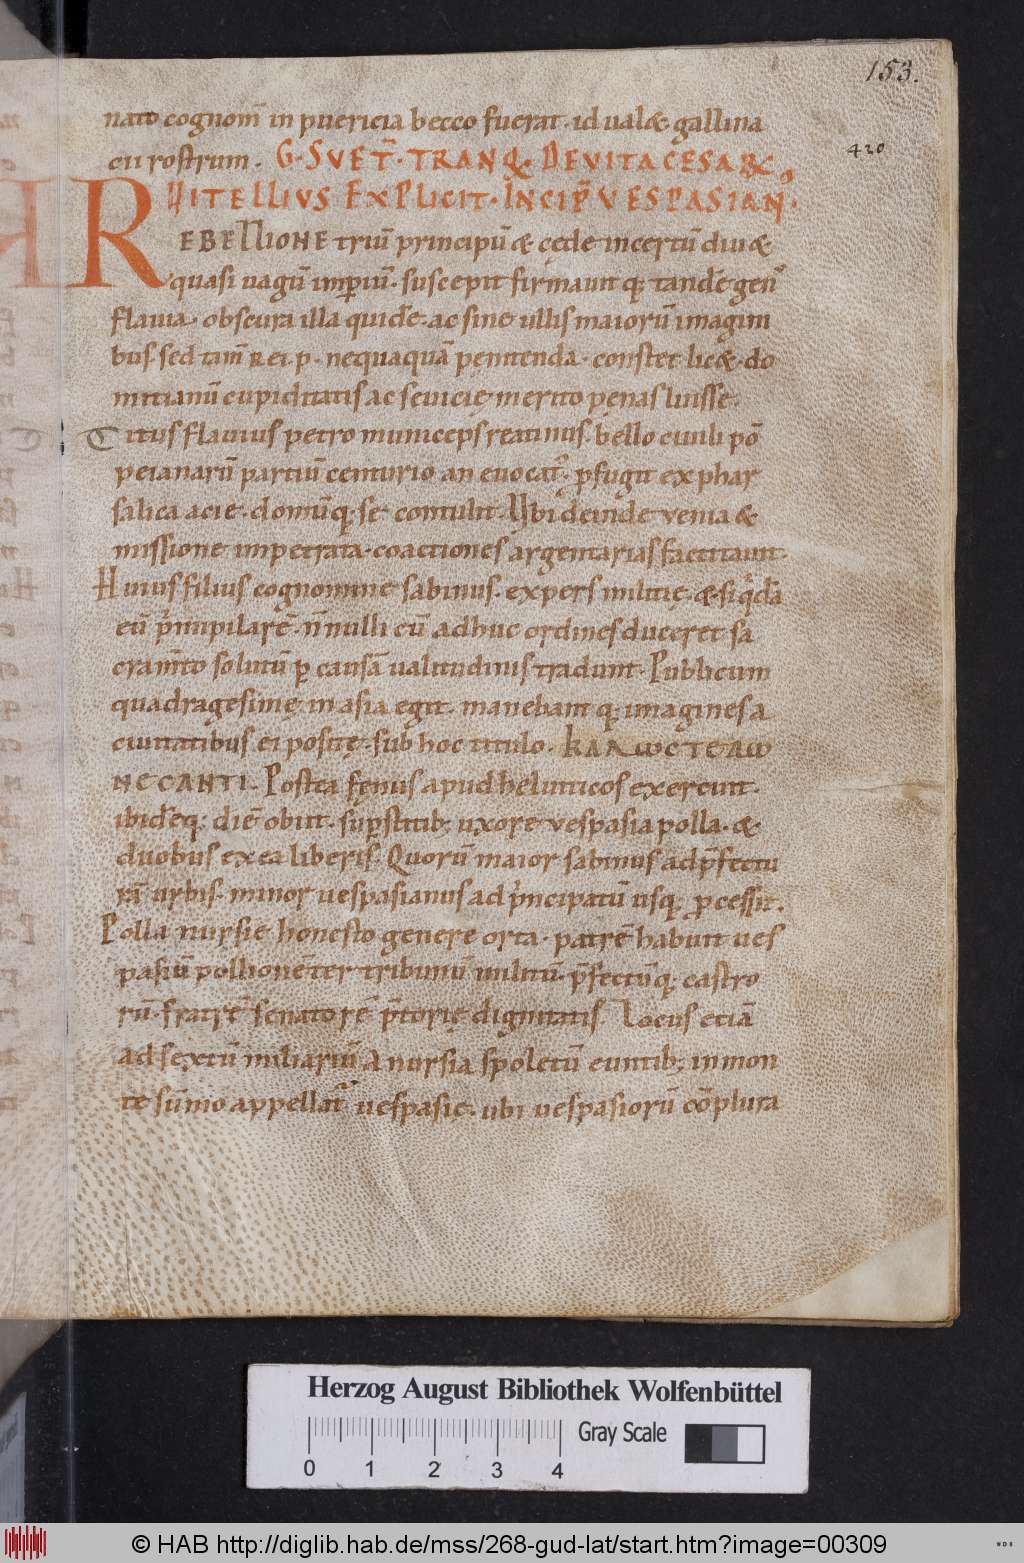 153.
nato cognom̄ in puericia becco fuerat· id ual& gallina
cei rostrum. G· SVET̄· TRANQ̨· DE VITA CESAR&
420
VITELLIVS EXPLICIT· INCIP̄ VESPASIAN9·
REBELLIONE triū principū & cęde incertū diu &
quasi uagū imp̄iū· suscepit firmauit q; tandē gen̄
flauia· obscura illa quidē· ac sine ullis maiorū imagini
bus sed tam̄ rei· p· nequaquā penitenda· constet lic&· do
mitianū cupiditatis ac seuicię· merito pęnas luisse·
Titus flauius petro municeps reatinus· bello ciuili pō
peianarū partiū centurio an euocat9· p̄fugit ex phar
salica acie· domūq; se contulit· Ubi deinde uenia &
missione impetrata· coactiones argentarias factitauit·
Huius filius cognomine sabinus· expers militię· & siq́dā
eū p̓mipilarē· n̄nulli cū adhuc ordines duceret sa
cram̄to solutū p̱ causā ualitudinis tradunt· Publicum
quadragesimę in asia egit· manebant q; imagines a
ciuitatibus ei positę· sub hoc titulo· ΚΑΛωCΤΕΛω
ΝΗCΑΝΤΙ· Postea fęnus apud heluticos exercuit·
ibidēq; diē obiit· sup̱stitib; uxore uespasia polla· &
duobus ex ea liberis· Quorū maior sabinus ad p̄fectu
rā urbis· minor uespasianus ad p̓ncipatū usq; p̱cessit·
Polla nursie honesto genere orta· patrē habuit ues
pasiū pollionē ter tribunū militū· p̄fectūq; castro
rū· fratrē senatorē p̄torię dignitatis· Locus etiā
ad sextū miliariū A nursia spoletū euntib; in mon
te sūmo appellat᷑ uespasię· ubi uespasiorū cōplura
Herzog August Bibliothek Wolfenbüttel
Gray Scale
0 1 2 3 4
© HAB http://diglib.hab.de/mss/268-gud-lat/start.htm?image=00309